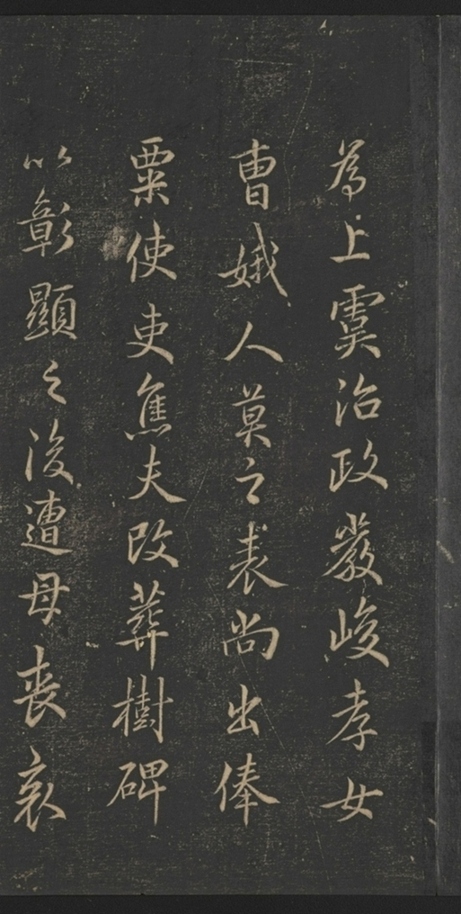 為上虞治政嚴峻孝女
曹娥人莫之表尚出俸
粟使吏焦夫改葬樹碑
以彰顯之後遭母喪哀